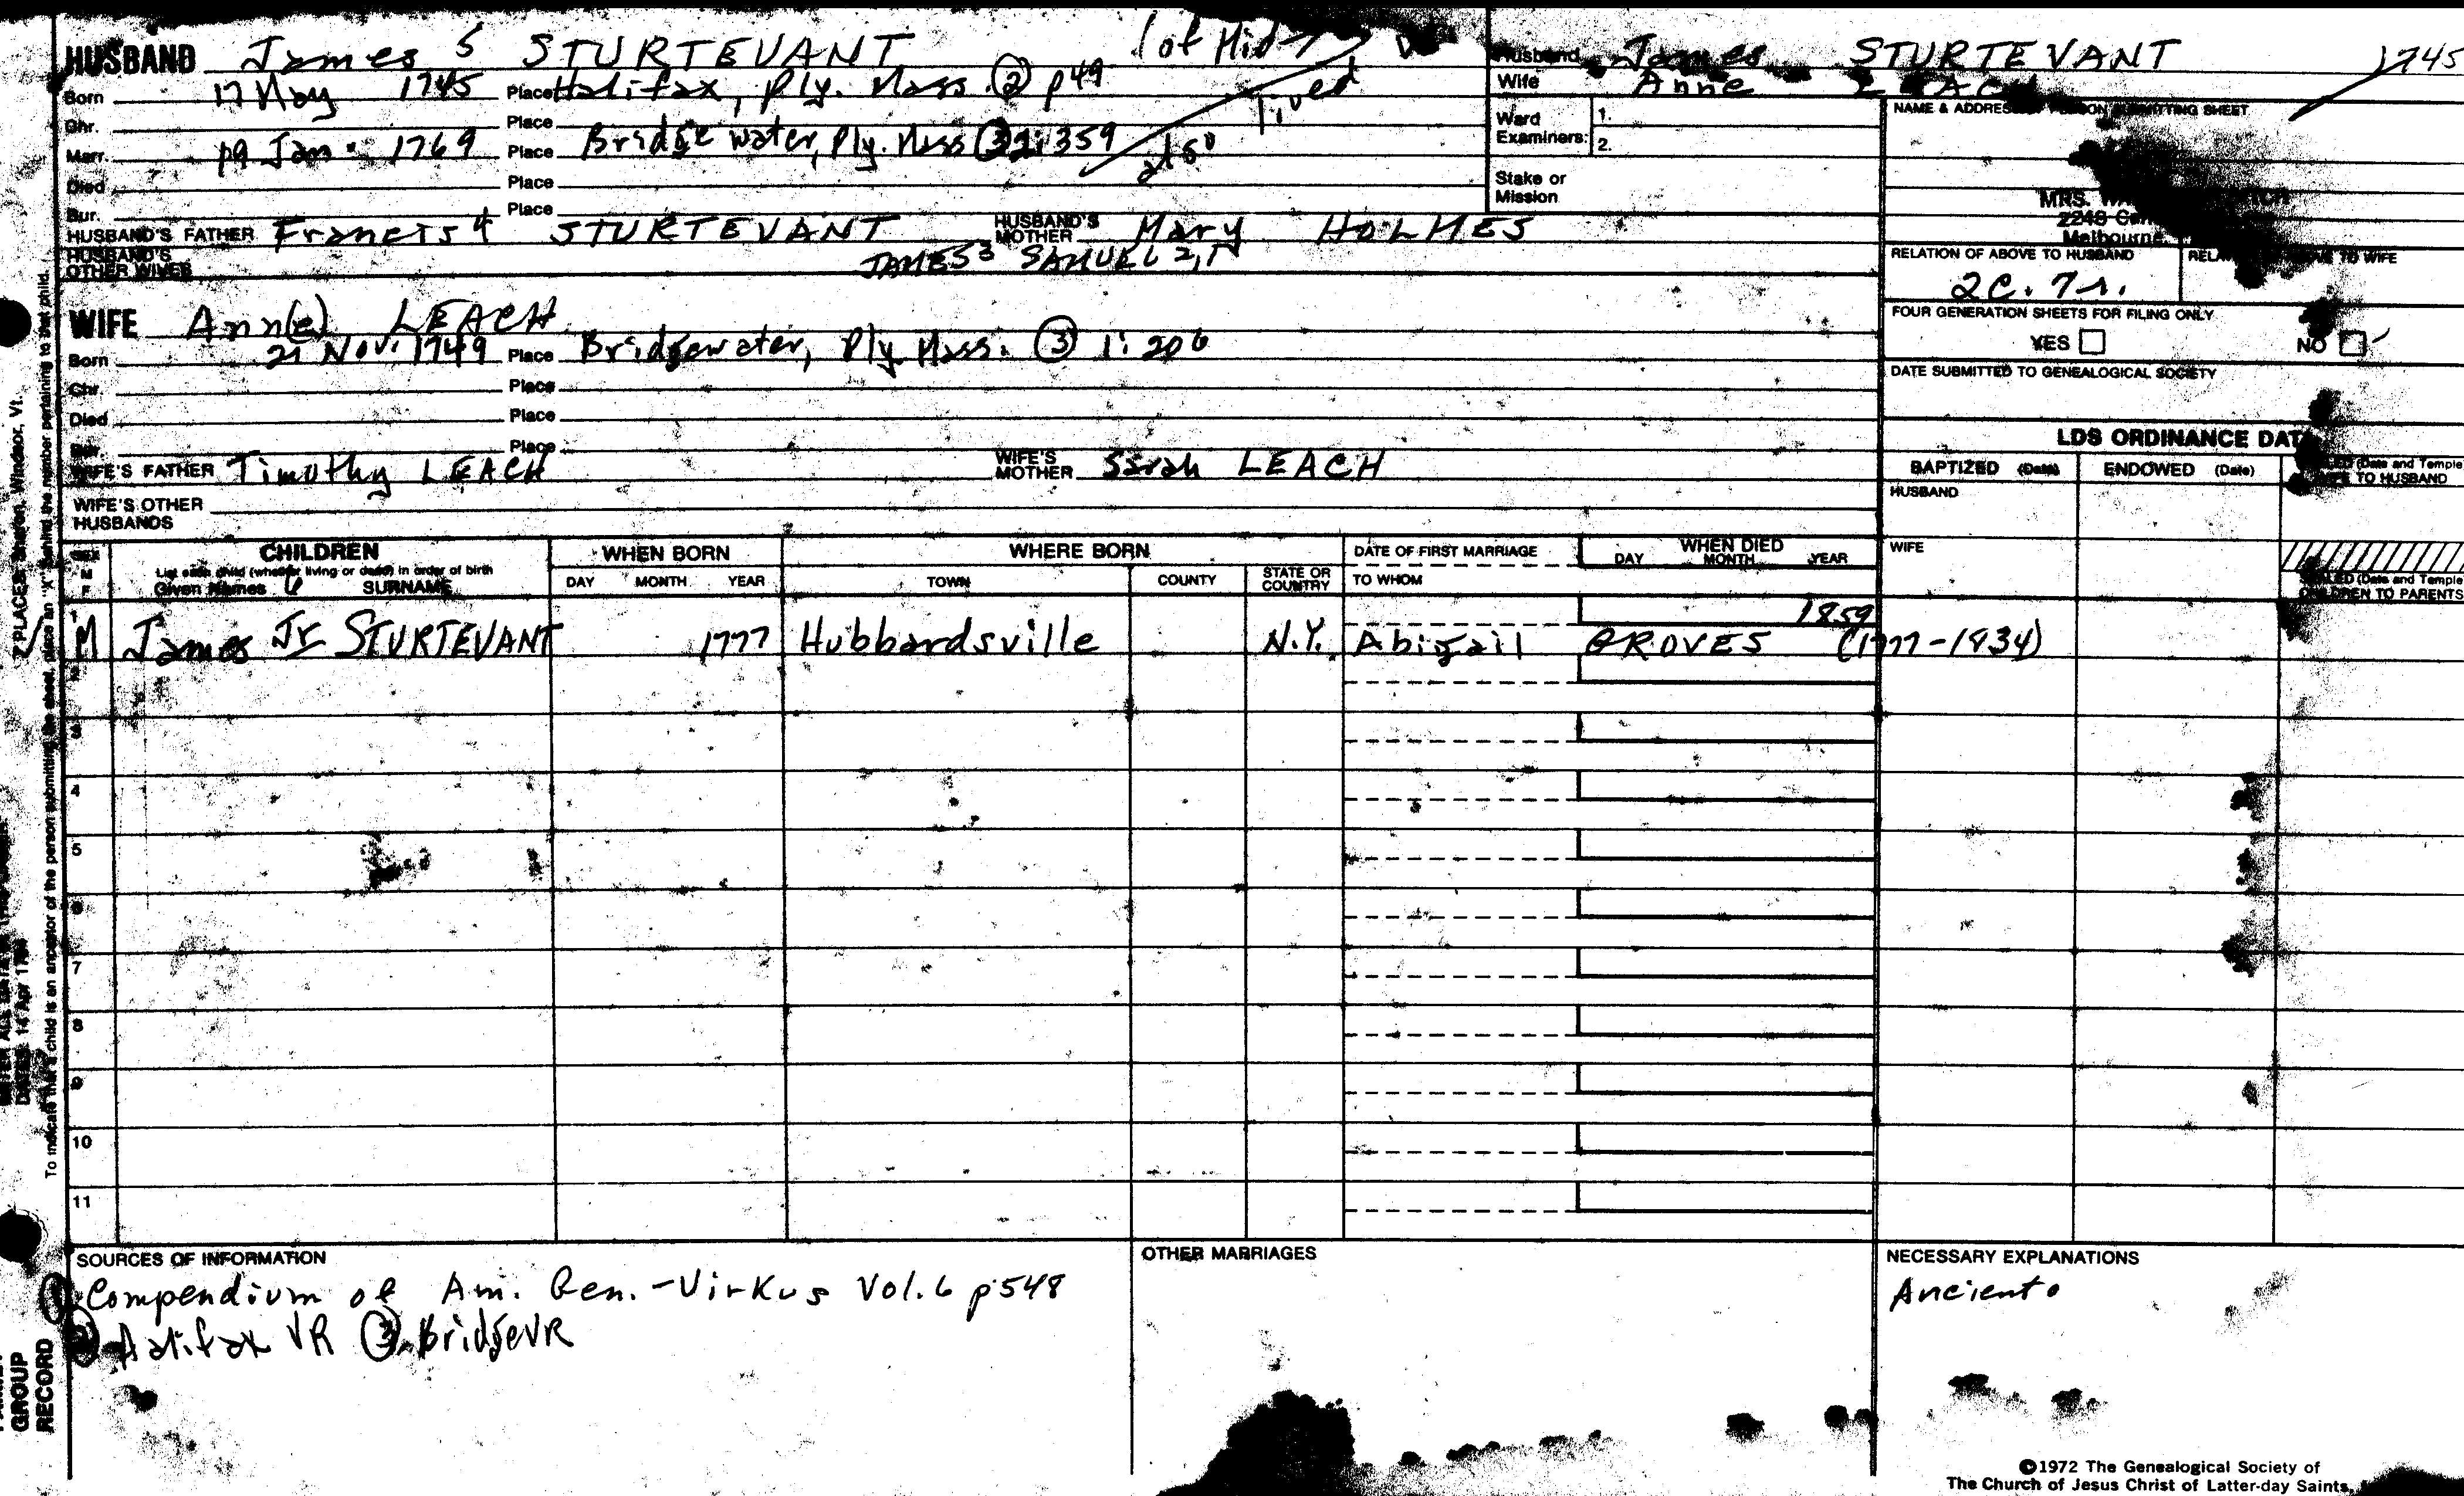 HUSBAND James 5 STURTEVANT
Born 17 May 1745 Place Halifax, Ply. Mass. ② p49
Chr. Place
Marr. p9 Jan. 1769 Place Bridgewater, Ply. Mass ③ 2:359
Died Place
Bur. Place
(of Mid
also lived
HUSBAND'S FATHER Francis 4 STURTEVANT HUSBAND'S MOTHER Mary HOLMES
HUSBAND'S OTHER WIVES
JAMES 3 SAMUEL 2, 1
WIFE Ann(e) LEACH
Born 21 Nov. 1749 Place Bridgewater, Ply. Mass. ③ 1:206
Chr. Place
Died Place
Place
WIFE'S FATHER Timothy LEACH WIFE'S MOTHER Sarah LEACH
WIFE'S OTHER HUSBANDS
Husband James STURTEVANT 1745
Wife Anne LEACH
Ward Examiners: 1.
2.
Stake or Mission
NAME & ADDRESS PERSON SUBMITTING SHEET
MRS.
2248
Melbourne
RELATION OF ABOVE TO HUSBAND
TO WIFE
2C. 7r.
FOUR GENERATION SHEETS FOR FILING ONLY
YES NO
DATE SUBMITTED TO GENEALOGICAL SOCIETY
LDS ORDINANCE DATA
BAPTIZED (Date) ENDOWED (Date) (Date and Temple)
WIFE TO HUSBAND
HUSBAND
WIFE
SEALED (Date and Temple)
CHILDREN TO PARENTS
SEX M F
CHILDREN
List each child (whether living or dead) in order of birth
Given Names 6 SURNAME
WHEN BORN
DAY MONTH YEAR
WHERE BORN
TOWN COUNTY STATE OR COUNTRY
DATE OF FIRST MARRIAGE
TO WHOM
WHEN DIED
DAY MONTH YEAR
1 1859
M James Jr STURTEVANT 1777 Hubbardsville N.Y. Abigail GROVES (1777-1834)
2
3
4
5
6
7
8
9
10
11
SOURCES OF INFORMATION
① Compendium of Am. Gen. - Virkus Vol. 6 p548
② Halifax VR ③ BridgeVR
OTHER MARRIAGES
NECESSARY EXPLANATIONS
Ancient.
©1972 The Genealogical Society of
The Church of Jesus Christ of Latter-day Saints
PLACES: Sharon, Windsor, Vt.
DATES: 14 Apr
To indicate that a child is an ancestor of the person submitting the sheet, place an "X" behind the number pertaining to that child.
GROUP
RECORD